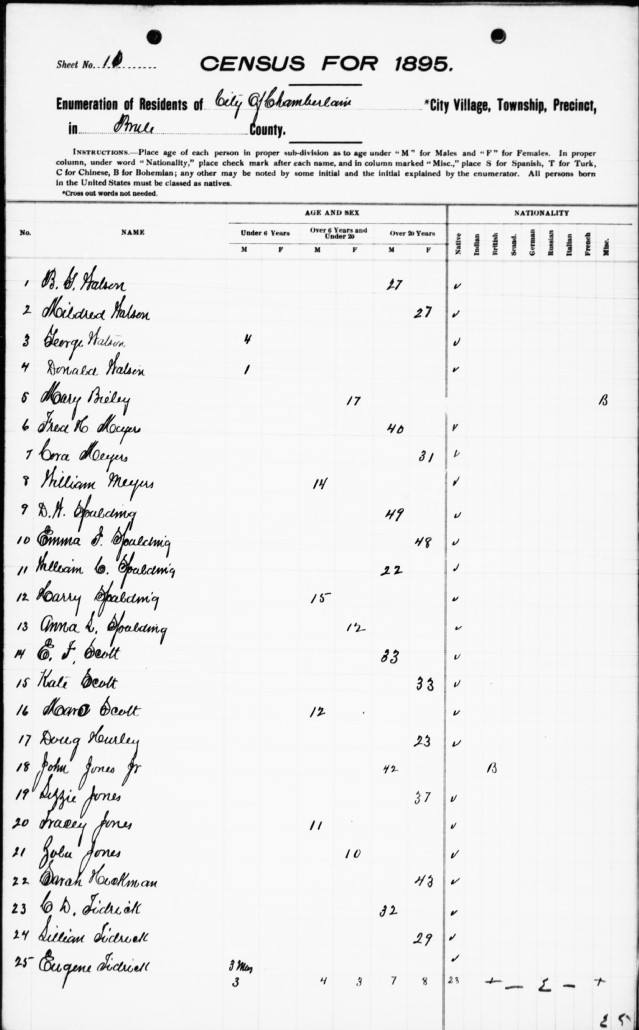 Sheet No. 10
CENSUS FOR 1895.
Enumeration of Residents of City Of Chamberlain *City Village, Township, Precinct,
in Brule County.
INSTRUCTIONS.—Place age of each person in proper sub-division as to age under "M" for Males and "F" for Females. In proper
column, under word "Nationality," place check mark after each name, and in column marked "Misc.," place S for Spanish, T for Turk,
C for Chinese, B for Bohemian; any other may be noted by some initial and the initial explained by the enumerator. All persons born
in the United States must be classed as natives.
*Cross out words not needed.
AGE AND SEX NATIONALITY
No. NAME Under 6 Years Over 6 Years and Under 20 Over 20 Years Native Indian British Scand. German Russian Italian French Misc.
M F M F M F
1 B. G. Watson 27 ✓
2 Mildred Watson 27 ✓
3 George Watson 4 ✓
4 Donald Watson 1 ✓
5 Mary Bieley 17 B
6 Fred H Meyers 40 ✓
7 Cora Meyers 31 ✓
8 William Meyers 14 ✓
9 D. W. Spalding 49 ✓
10 Emma F. Spalding 48 ✓
11 William C. Spalding 22 ✓
12 Harry Spalding 15 ✓
13 Anna L. Spalding 12 ✓
14 E. F. Scott 33 ✓
15 Kate Scott 33 ✓
16 Scott 12 ✓
17 Hurley 23 ✓
18 John Jones Jr 42 B
19 Lizzie Jones 37 ✓
20 Tracey Jones 11 ✓
21 Jones 10 ✓
22 Sarah Hickman 43 ✓
23 C D. Tidrick 32 ✓
24 Lillian Tidrick 29 ✓
25 Eugene Tidrick 3 Mos ✓
3 4 3 7 8 23 + — — +